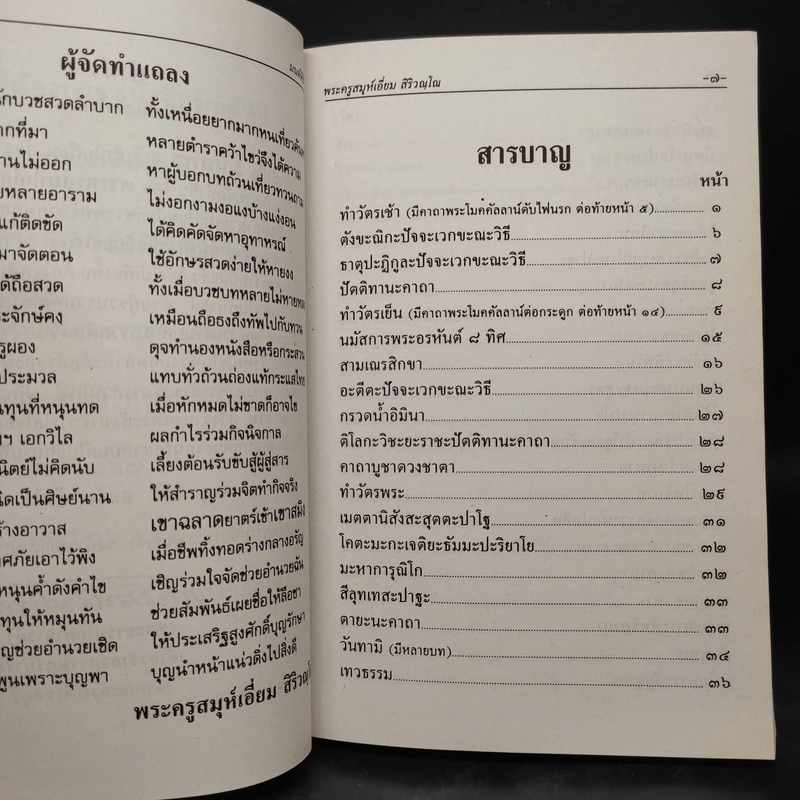 ผู้จัดทำแถลง
กบวชสวดลำบาก ทั้งเหนื่อยยากมากหนเที่ยวค้น
ากที่มา หลายตำราคว้าไขว่จึงได้ความ
านไม่ออก หาผู้บอกบทถ้วนเที่ยวทวนถาม
ยหลายอาราม ไม่งอกงามงอแงบ้างแง่งอน
แก้ติดขัด ได้คิดคัดจัดหาอุทาหรณ์
มาจัดตอน ใช้อักษรสวดง่ายให้หายงง
ด้ถือสวด ทั้งเมื่อบวชบทหลายไม่หายหลง
ะจักษ์คง เหมือนถือธงถึงทัพไปกับทวน
รูผอง ดุจทำนองหนังสือหรือกระสวน
ประมวล แทบทั่วถ้วนถ่องแท้กระแสไทย
ทุนที่หนุนทด เมื่อหักหมดไม่ขาดก็อาจไข
ฯ เอกวิไล ผลกำไรร่วมกิจนิจกาล
นิตย์ไม่คิดนับ เลี้ยงต้อนรับขับสู้ผู้สู่สาร
นิดเป็นศิษย์นาน ให้สำราญร่วมจิตทำกิจจริง
ร้างอาวาส เขาฉลาดยาตร์เข้าเขาสมิง
ศภัยเอาไว้พิง เมื่อชีพทิ้งทอดร่างกลางอรัญ
หนุนค้ำดังคำไข เชิญร่วมใจจัดช่วยอำนวยฉัน
ทุนให้หมุนทัน ช่วยสัมพันธ์เผยชื่อให้ลือชา
ญช่วยอำนวยเชิด ให้ประเสริฐสูงศักดิ์บุญรักษา
พูนเพราะบุญพา บุญนำหน้าแน่วดิ่งไปสิ่งดี
พระครูสมุห์เอี่ยม สิริวณฺโณ
พระครูสมุห์เอี่ยม สิริวณฺโณ -๗-
สารบาญ
หน้า
ทำวัตรเช้า (มีคาถาพระโมคคัลลาน์ดับไฟนรก ต่อท้ายหน้า ๕) ๑
ตังขะณิกะปัจจะเวกขะณะวิธี ๖
ธาตุปะฏิกูละปัจจะเวกขะณะวิธี ๗
ปัตติทานะคาถา ๘
ทำวัตรเย็น (มีคาถาพระโมคคัลลาน์ต่อกระดูก ต่อท้ายหน้า ๑๔) ๙
นมัสการพระอรหันต์ ๘ ทิศ ๑๕
สามเณรสิกขา ๑๖
อะตีตะปัจจะเวกขะณะวิธี ๒๖
กรวดน้ำอิมินา ๒๗
ติโลกะวิชะยะราชะปัตติทานะคาถา ๒๘
คาถาบูชาดวงชาตา ๒๘
ทำวัตรพระ ๒๙
เมตตานิสังสะสุตตะปาโฐ ๓๑
โคตะมะกะเจติยะธัมมะปะริยาโย ๓๒
มะหาการุณิโก ๓๒
สีลุทเทสะปาฐะ ๓๓
ตายะนะคาถา ๓๓
วันทามิ (มีหลายบท) ๓๔
เทวธรรม ๓๖